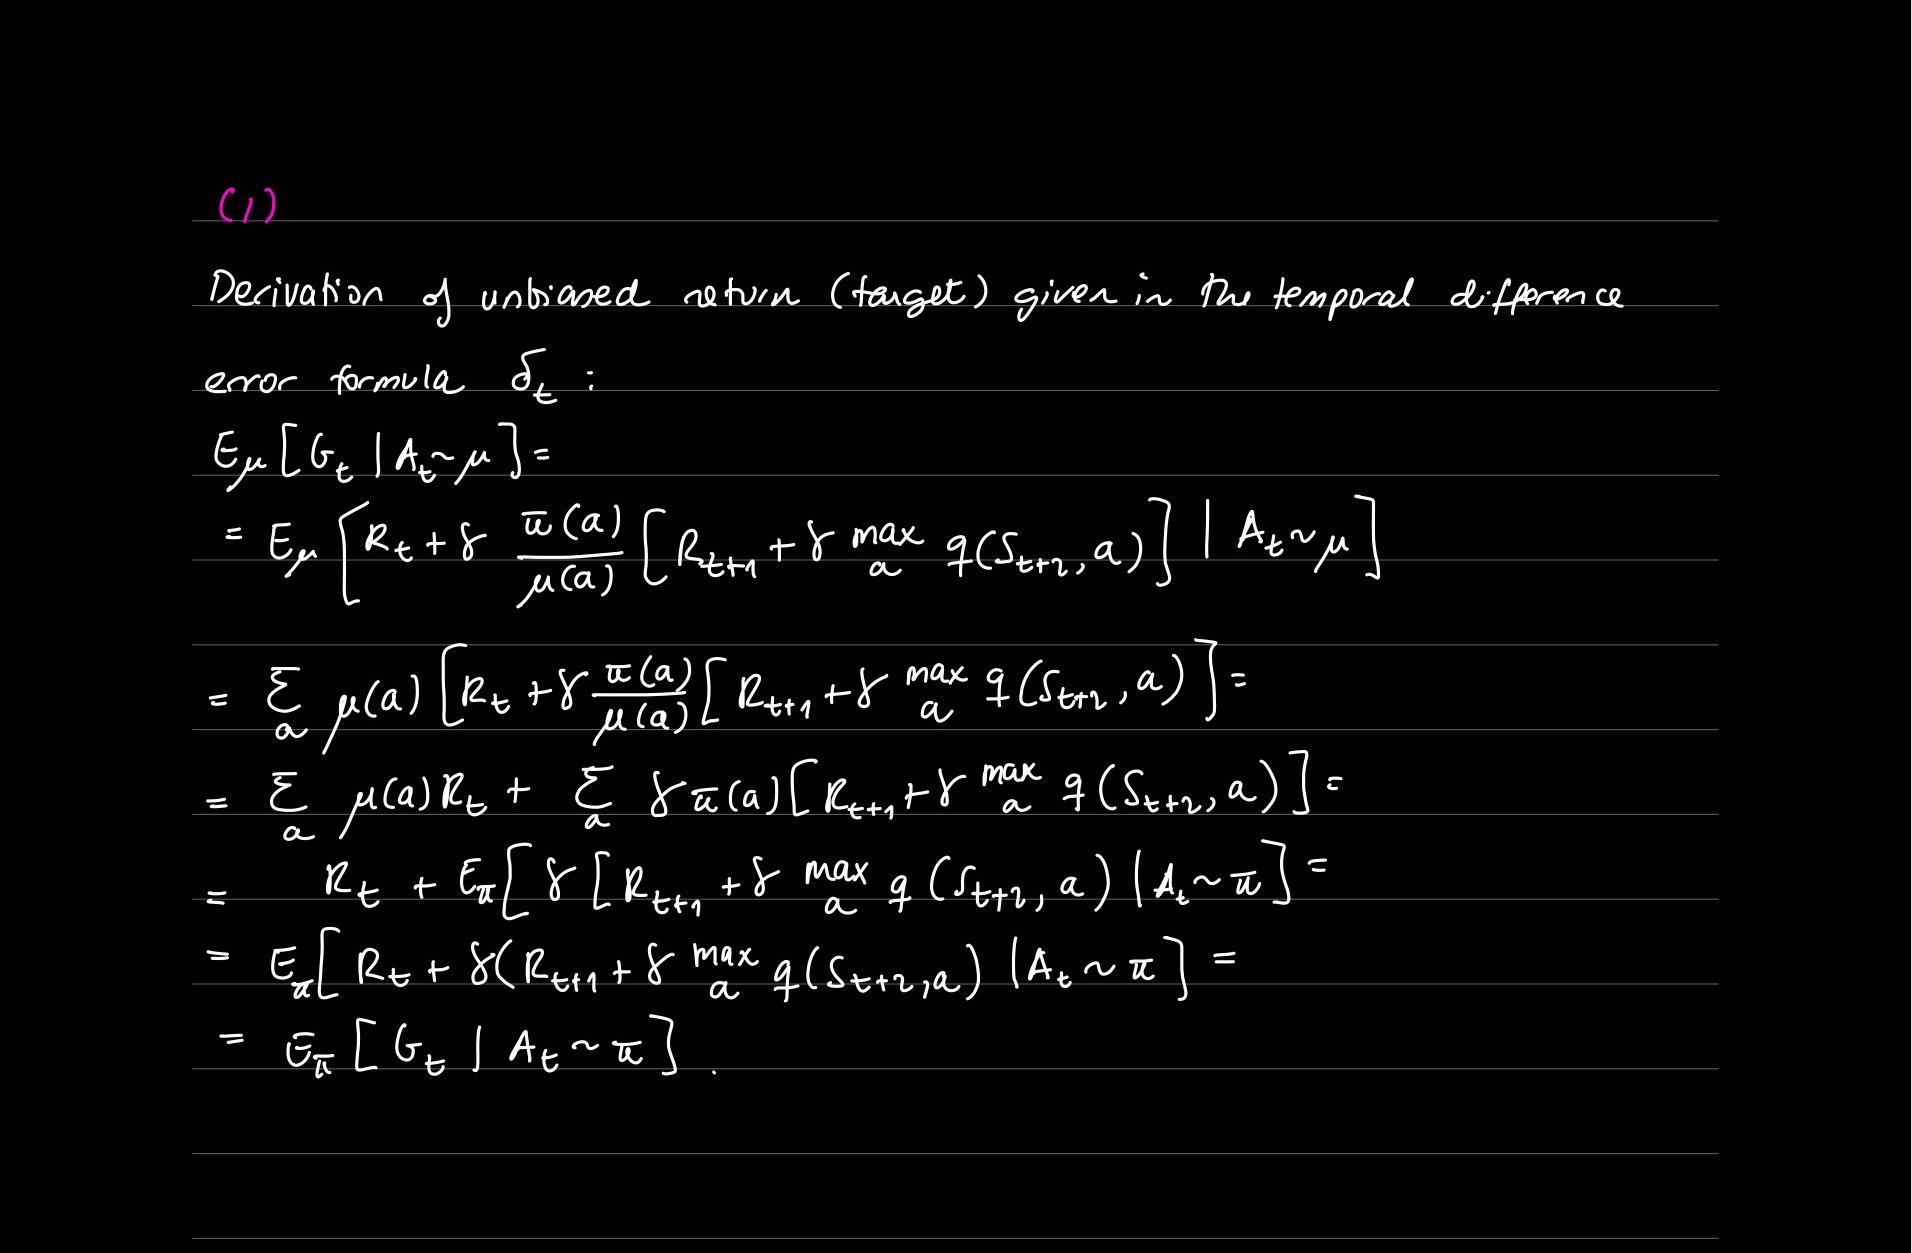 (1)
Derivation of unbiased return (target) given in the temporal difference
error formula δ_t :
E_μ [G_t | A_t ~ μ] =
= E_μ [R_t + γ π(a)/μ(a) [R_{t+1} + γ max_a q(S_{t+2}, a)] | A_t ~ μ]
= Σ_a μ(a) [R_t + γ π(a)/μ(a) [R_{t+1} + γ max_a q(S_{t+2}, a)] =
= Σ_a μ(a) R_t + Σ_a γ π(a) [R_{t+1} + γ max_a q(S_{t+2}, a)] =
= R_t + E_π [γ [R_{t+1} + γ max_a q(S_{t+2}, a) | A_t ~ π] =
= E_π [R_t + γ(R_{t+1} + γ max_a q(S_{t+2}, a) | A_t ~ π] =
= E_π [G_t | A_t ~ π] .